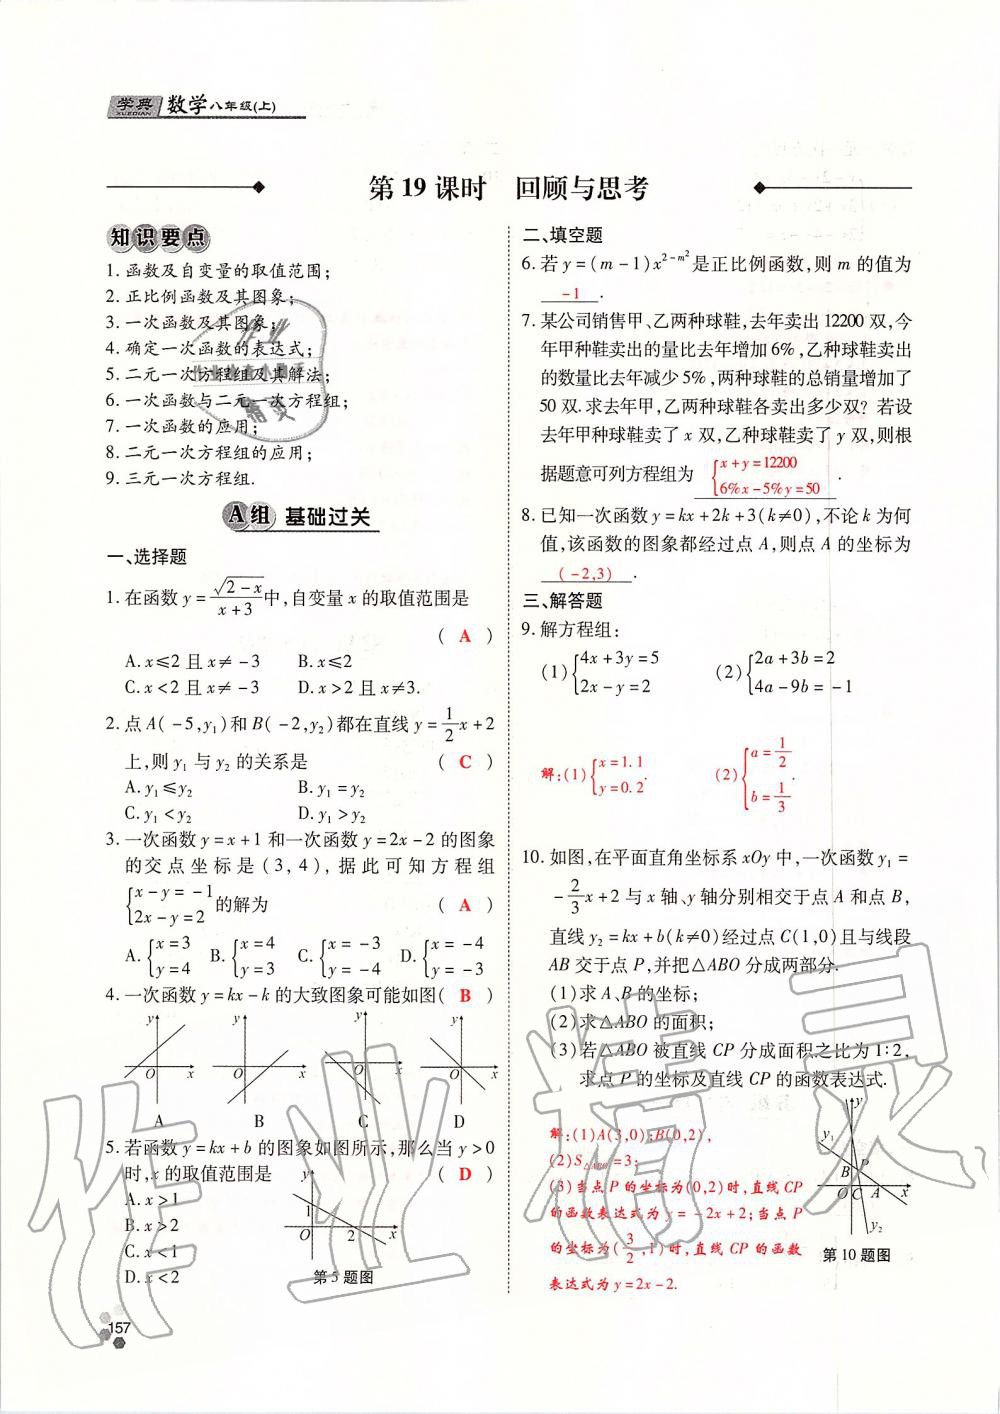 学典 数学八年级(上)
XUEDIAN
第 19 课时 回顾与思考
知识要点
1. 函数及自变量的取值范围；
2. 正比例函数及其图象；
3. 一次函数及其图象；
4. 确定一次函数的表达式；
5. 二元一次方程组及其解法；
6. 一次函数与二元一次方程组；
7. 一次函数的应用；
8. 二元一次方程组的应用；
9. 三元一次方程组.
A组 基础过关
一、选择题
1. 在函数 y = √(2-x) / (x+3) 中,自变量 x 的取值范围是
( A )
A. x≤2 且 x≠-3 B. x≤2
C. x<2 且 x≠-3 D. x>2 且 x≠3.
2. 点 A(-5,y₁)和 B(-2,y₂)都在直线 y = 1/2 x+2
上,则 y₁ 与 y₂ 的关系是 ( C )
A. y₁≤y₂ B. y₁=y₂
C. y₁<y₂ D. y₁>y₂
3. 一次函数 y=x+1 和一次函数 y=2x-2 的图象
的交点坐标是(3,4),据此可知方程组
{x-y=-1
2x-y=2 的解为 ( A )
A. {x=3 B. {x=4 C. {x=-3 D. {x=-4
y=4 y=3 y=-4 y=-3
4. 一次函数 y=kx-k 的大致图象可能如图( B )
y y y y
O x O x O x O x
A B C D
5. 若函数 y=kx+b 的图象如图所示,那么当 y>0
时,x 的取值范围是 ( D )
A. x>1
B. x>2
C. x<1
D. x<2
y
1
O 2 x
第 5 题图
157
二、填空题
6. 若 y=(m-1)x^(2-m²) 是正比例函数,则 m 的值为
-1 .
7. 某公司销售甲、乙两种球鞋,去年卖出 12200 双,今
年甲种鞋卖出的量比去年增加 6%,乙种球鞋卖出
的数量比去年减少 5%,两种球鞋的总销量增加了
50 双. 求去年甲,乙两种球鞋各卖出多少双? 若设
去年甲种球鞋卖了 x 双,乙种球鞋卖了 y 双,则根
据题意可列方程组为 {x+y=12200
6%x-5%y=50 .
8. 已知一次函数 y=kx+2k+3(k≠0),不论 k 为何
值,该函数的图象都经过点 A,则点 A 的坐标为
(-2,3) .
三、解答题
9. 解方程组:
(1){4x+3y=5 (2){2a+3b=2
2x-y=2 4a-9b=-1
解:(1){x=1.1 (2){a=1/2
y=0.2. b=1/3
10. 如图,在平面直角坐标系 xOy 中,一次函数 y₁=
-2/3 x+2 与 x 轴、y 轴分别相交于点 A 和点 B,
直线 y₂=kx+b(k≠0)经过点 C(1,0)且与线段
AB 交于点 P,并把△ABO 分成两部分.
(1)求 A、B 的坐标;
(2)求△ABO 的面积;
(3)若△ABO 被直线 CP 分成面积之比为 1:2,
求点 P 的坐标及直线 CP 的函数表达式.
解:(1)A(3,0);B(0,2),
(2)S△ABO=3;
(3)当点 P 的坐标为(0,2)时,直线 CP
的函数表达式为 y=-2x+2;当点 P
的坐标为(3/2,1)时,直线 CP 的函数
表达式为 y=2x-2.
y
y₁
B P
O C A x
y₂
第 10 题图
作业精灵